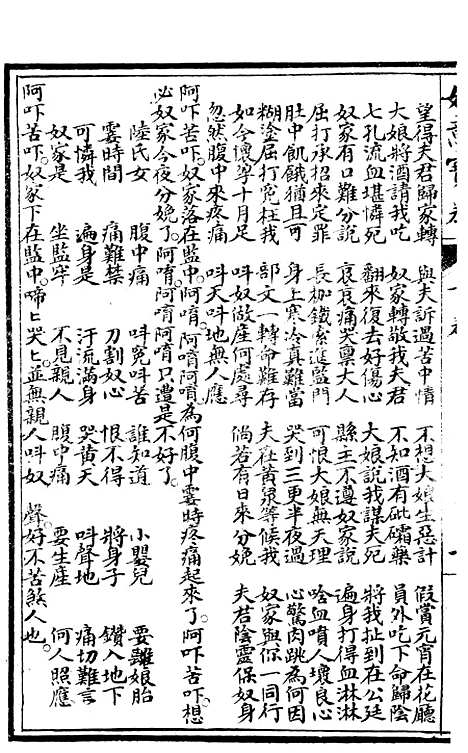 望得夫君歸家轉 與夫訴過苦中情 不想大娘生惡計 假賞元宵在花廳
大娘將酒請我吃 奴家轉敬我夫君 不知酒有砒礵藥 員外吃下命歸陰
七孔流血堪憐死 翻來復去好傷心 大娘說我謀夫死 將我扯到在公廷
奴家有口難分說 哀哀痛哭禀大人 縣主不遵奴家說 遍身打得血淋淋
屈打承招來定罪 長枷鐵索進監門 可恨大娘無天理 唅血噴人壞良心
肚中飢餓猶且可 身上寒冷真難當 哭到三更半夜過 心驚肉跳為何因
糊塗屈打冤枉我 部文一轉命難存 夫在黃泉等候我 奴家與你一同行
如今懷孕十月足 呌奴做產何處尋 倘若有日來分娩 夫君陰靈保奴身
忽然腹中來疼痛 呌天呌地無人應
阿吓苦吓。奴家落在監中。阿唷。阿唷阿唷為何腹中霎時疼痛起來了。阿吓苦吓。想
必奴家今夜分娩了。阿唷。阿唷阿唷只遭是不好了。
陸氏女 腹中痛 呌冤呌苦 誰知道 小嬰兒 要離娘胎
霎時間 痛難禁 刀割奴心 恨不得 將身子 鑽入地下
可憐我 遍身是 汗流滿身 哭黃天 呌聲地 痛切難言
奴家是 坐監牢 不見親人 腹中痛 要生產 何人照應。
阿吓苦吓。奴家下在監中。啼ヒ哭ヒ。並無親人呌奴 聲。好不苦煞人也。